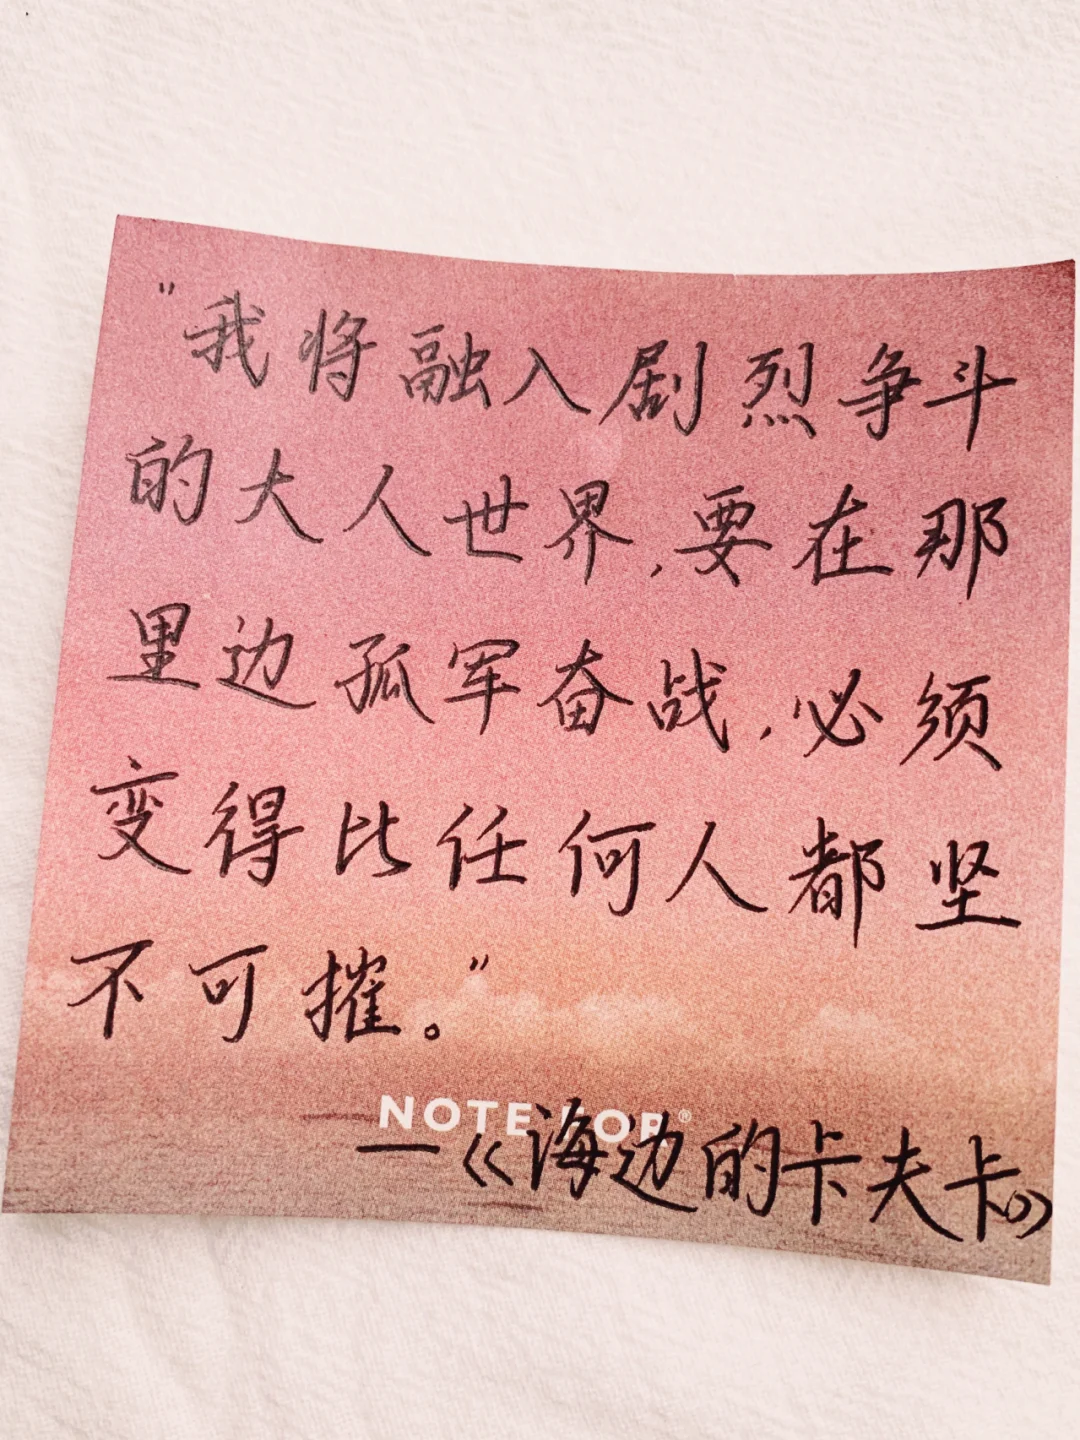 "我将融入剧烈争斗
的大人世界,要在那
里边孤军奋战,必须
变得比任何人都坚
不可摧。"
NOTE FOR®
—《海边的卡夫卡》